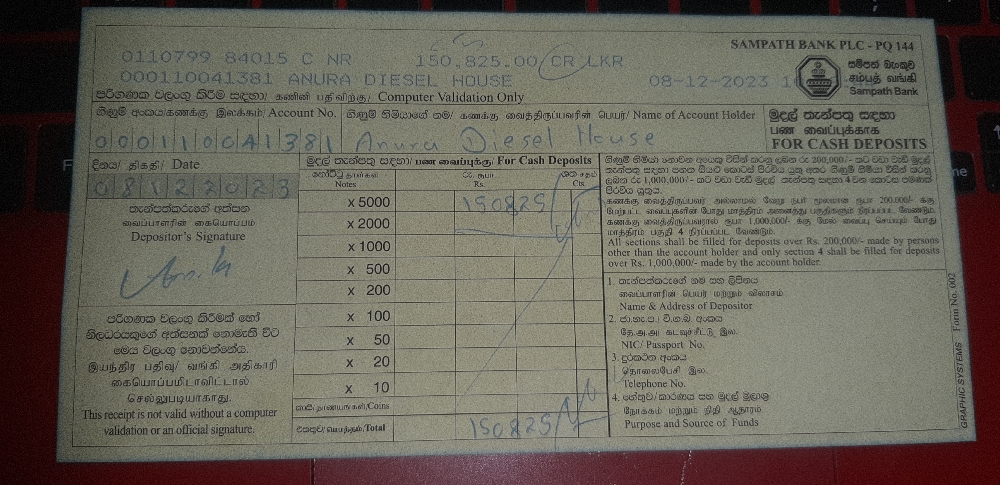 SAMPATH BANK PLC - PQ 144
0110799 84015 C NR 150,825.00 CR LKR
000110041381 ANURA DIESEL HOUSE 08-12-2023
සම්පත් බැංකුව
சம்பத் வங்கி
Sampath Bank
පරිගණක වලංගු කිරීම සඳහා/ கணினி பதிவிற்கு/ Computer Validation Only
ගිණුම් අංකය/கணக்கு இலக்கம்/ Account No. ගිණුම් හිමියාගේ නම/ கணக்கு வைத்திருப்பவரின் பெயர்/ Name of Account Holder
000110041381 Anura Diesel House
මුදල් තැන්පතු සඳහා
பண வைப்புக்காக
FOR CASH DEPOSITS
දිනය/ திகதி/ Date
08122023
තැන්පත්කරුගේ අත්සන
வைப்பாளரின் கையொப்பம்
Depositor's Signature
පරිගණක වලංගු කිරීමක් හෝ
නිලධරයකුගේ අත්සනක් නොමැති විට
මෙය වලංගු නොවන්නේය.
இயந்திர பதிவு/ வங்கி அதிகாரி
கையொப்பமிடாவிட்டால்
செல்லுபடியாகாது.
This receipt is not valid without a computer
validation or an official signature.
මුදල් තැන්පතු සඳහා/ பண வைப்புக்கு/ For Cash Deposits
නෝට්ටු தாள்கள் Notes
රු. ரூபா Rs.
ශත சதம் Cts.
x 5000 150825
x 2000
x 1000
x 500
x 200
x 100
x 50
x 20
x 10
කාසි/நாணயங்கள்/Coins
එකතුව/மொத்தம்/Total 150825
All sections shall be filled for deposits over Rs. 200,000/- made by persons
other than the account holder and only section 4 shall be filled for deposits
over Rs. 1,000,000/- made by the account holder.
1. තැන්පත්කරුගේ නම සහ ලිපිනය
வைப்பாளரின் பெயர் மற்றும் விலாசம்
Name & Address of Depositor
2. ජා.හැ.ප./ වි.ග.බ. අංකය
தே.அ.அ/ கடவுச்சீட்டு இல.
NIC/ Passport No.
3. දුරකථන අංකය
தொலைபேசி இல.
Telephone No.
4. හේතුව/කාරණය සහ මුදල් මූලාශ්‍ර
நோக்கம் மற்றும் நிதி ஆதாரம்
Purpose and Source of Funds
GRAPHIC SYSTEMS Form No. 002